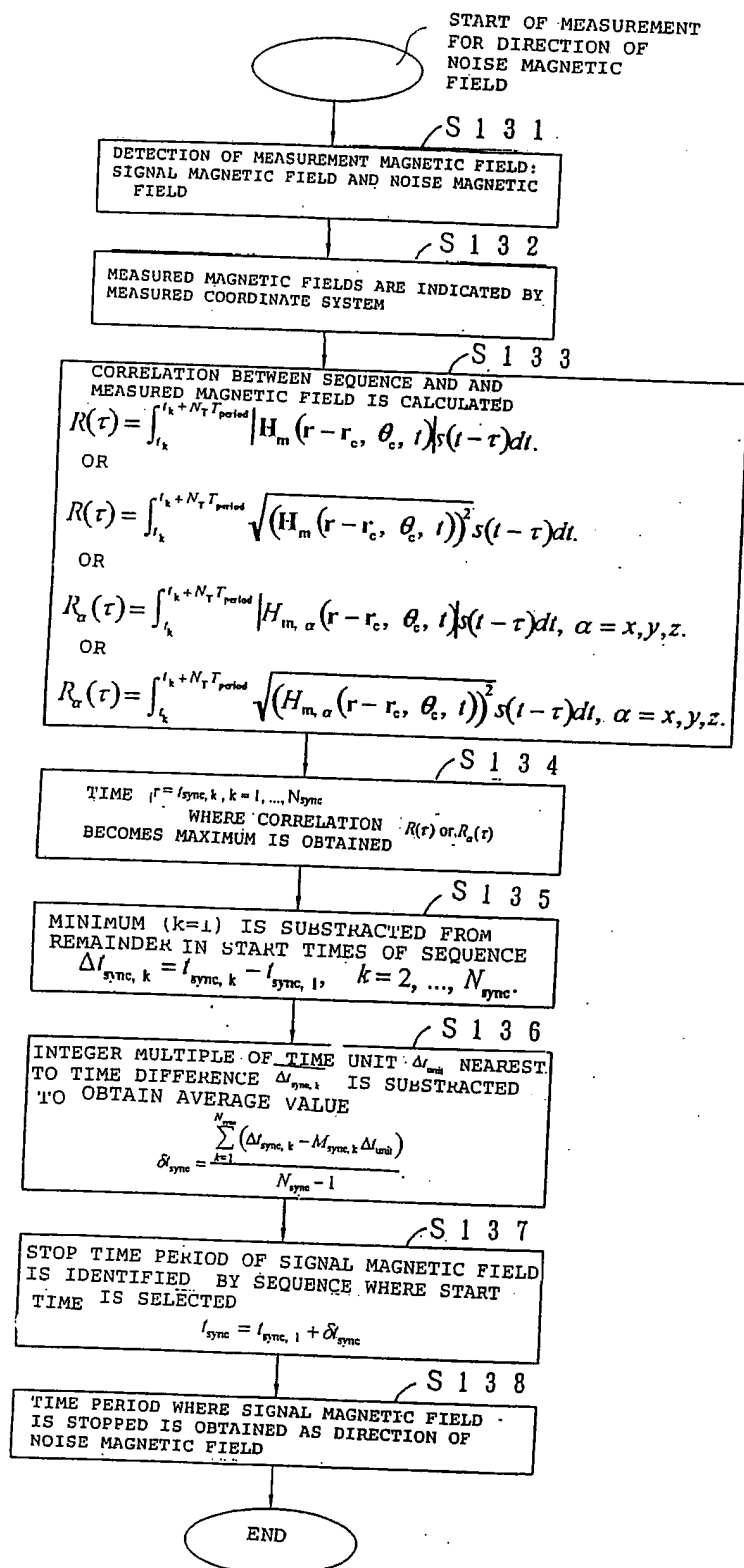 START OF MEASUREMENT
FOR DIRECTION OF
NOISE MAGNETIC
FIELD
S131
DETECTION OF MEASUREMENT MAGNETIC FIELD:
SIGNAL MAGNETIC FIELD AND NOISE MAGNETIC
FIELD
S132
MEASURED MAGNETIC FIELDS ARE INDICATED BY
MEASURED COORDINATE SYSTEM
S133
CORRELATION BETWEEN SEQUENCE AND AND
MEASURED MAGNETIC FIELD IS CALCULATED
R(τ) = ∫_{t_k}^{t_k + N_T T_period} |H_m (r − r_c, θ_c, t)| s(t − τ)dt.
OR
R(τ) = ∫_{t_k}^{t_k + N_T T_period} √((H_m (r − r_c, θ_c, t))²) s(t − τ)dt.
OR
R_α(τ) = ∫_{t_k}^{t_k + N_T T_period} |H_{m, α} (r − r_c, θ_c, t)| s(t − τ)dt, α = x, y, z.
OR
R_α(τ) = ∫_{t_k}^{t_k + N_T T_period} √((H_{m, α} (r − r_c, θ_c, t))²) s(t − τ)dt, α = x, y, z.
S134
TIME τ = t_{sync, k}, k = 1, ..., N_sync
WHERE CORRELATION R(τ) or, R_α(τ)
BECOMES MAXIMUM IS OBTAINED
S135
MINIMUM (k=1) IS SUBSTRACTED FROM
REMAINDER IN START TIMES OF SEQUENCE
Δt_{sync, k} = t_{sync, k} − t_{sync, 1}, k = 2, ..., N_sync.
S136
INTEGER MULTIPLE OF TIME UNIT Δt_unit NEAREST
TO TIME DIFFERENCE Δt_{sync, k} IS SUBSTRACTED
TO OBTAIN AVERAGE VALUE
δt_sync = ∑_{k=1}^{N_sync} (Δt_{sync, k} − M_{sync, k} Δt_unit) / (N_sync − 1)
S137
STOP TIME PERIOD OF SIGNAL MAGNETIC FIELD
IS IDENTIFIED BY SEQUENCE WHERE START
TIME IS SELECTED
t_sync = t_{sync, 1} + δt_sync
S138
TIME PERIOD WHERE SIGNAL MAGNETIC FIELD
IS STOPPED IS OBTAINED AS DIRECTION OF
NOISE MAGNETIC FIELD
END